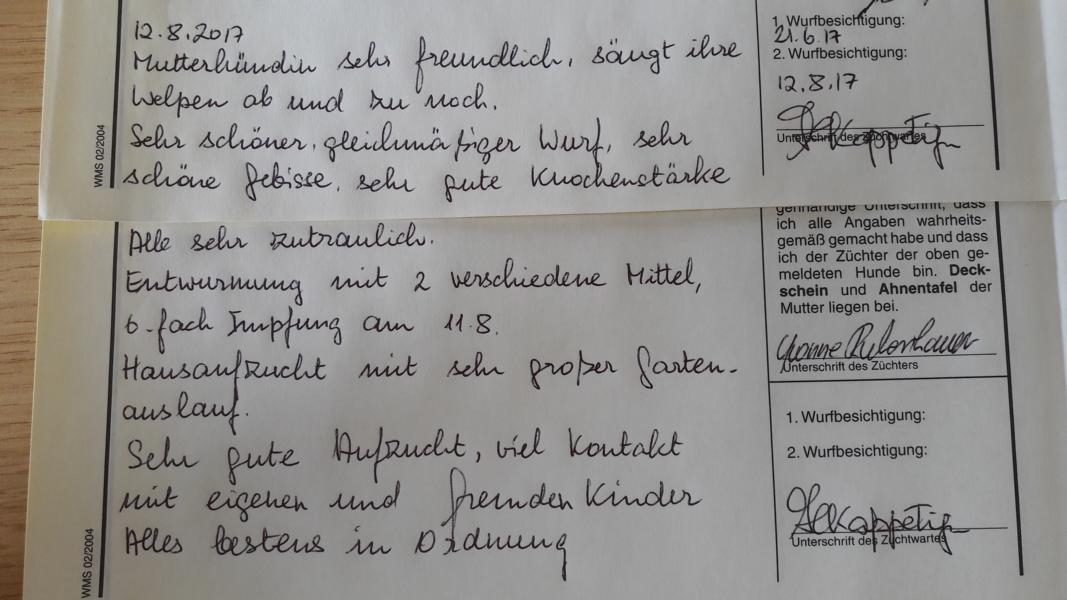 12.8.2017
Mutterhündin sehr freundlich, säugt ihre
Welpen ab und zu noch.
Sehr schöner, gleichmäßiger Wurf, sehr
schöne Gebisse, sehr gute Knochenstärke
WMS 02/2004
1. Wurfbesichtigung:
21.6.17
2. Wurfbesichtigung:
12.8.17
Unterschrift des Zuchtwartes
Alle sehr zutraulich.
Entwurmung mit 2 verschiedene Mittel,
6-fach Impfung am 11.8.
Hausaufzucht mit sehr großer Garten-
auslauf.
Sehr gute Aufzucht, viel Kontakt
mit eigenen und fremden Kinder
Alles bestens in Ordnung
WMS 02/2004
genhändige Unterschrift, dass
ich alle Angaben wahrheits-
gemäß gemacht habe und dass
ich der Züchter der oben ge-
meldeten Hunde bin. Deck-
schein und Ahnentafel der
Mutter liegen bei.
Yvonne
Unterschrift des Züchters
1. Wurfbesichtigung:
2. Wurfbesichtigung:
Unterschrift des Zuchtwartes